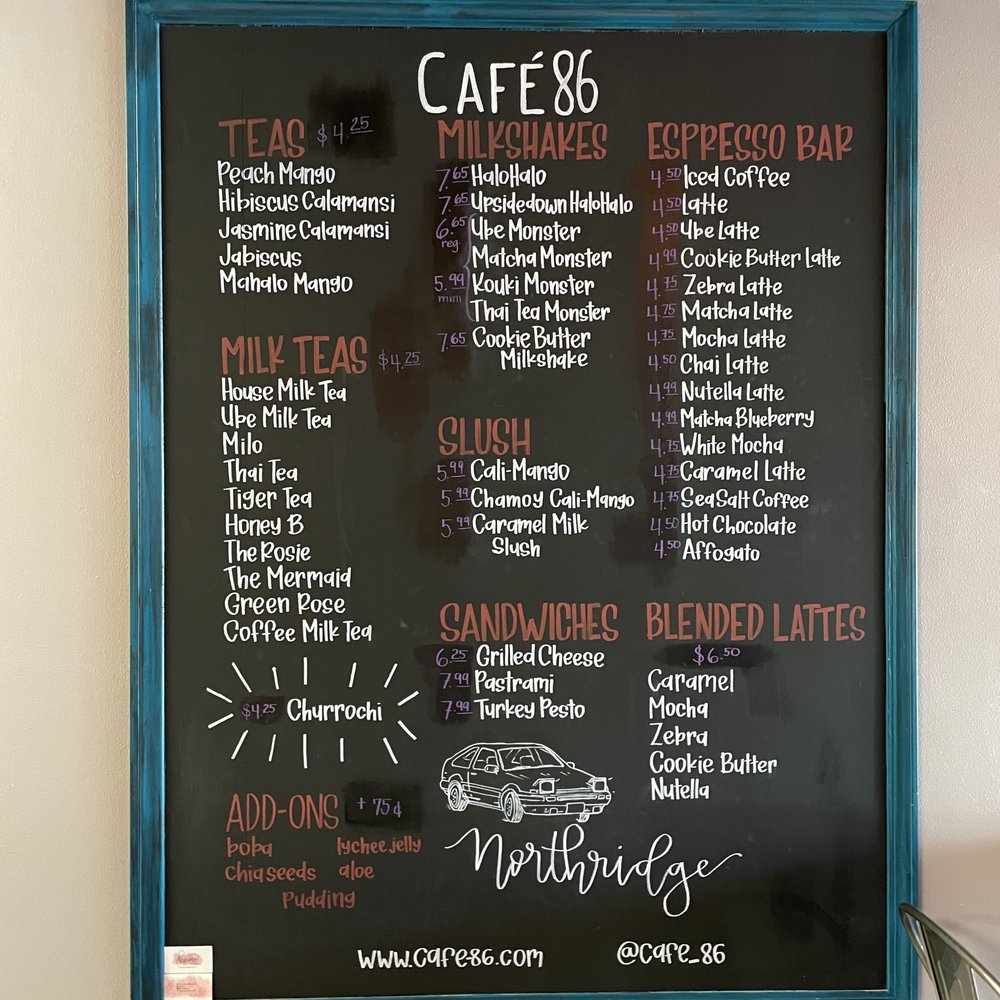 CAFÉ 86
TEAS $4.25
Peach Mango
Hibiscus Calamansi
Jasmine Calamansi
Jabiscus
Mahalo Mango
MILK TEAS $4.25
House Milk Tea
Ube Milk Tea
Milo
Thai Tea
Tiger Tea
Honey B
The Rosie
The Mermaid
Green Rose
Coffee Milk Tea
$4.25 Churrochi
ADD-ONS + 75¢
boba lychee jelly
chia seeds aloe
Pudding
MILKSHAKES
7.65 HaloHalo
7.65 Upsidedown HaloHalo
6.65 Ube Monster
reg. Matcha Monster
5.99 Kouki Monster
mini Thai Tea Monster
7.65 Cookie Butter
Milkshake
SLUSH
5.99 Cali-Mango
5.99 Chamoy Cali-Mango
5.99 Caramel Milk
Slush
SANDWICHES
6.25 Grilled Cheese
7.99 Pastrami
7.99 Turkey Pesto
Northridge
ESPRESSO BAR
4.50 Iced Coffee
4.50 latte
4.50 Ube Latte
4.99 Cookie Butter Latte
4.75 Zebra Latte
4.75 Matcha Latte
4.75 Mocha Latte
4.50 Chai Latte
4.99 Nutella Latte
4.99 Matcha Blueberry
4.75 White Mocha
4.75 Caramel Latte
4.75 Sea Salt Coffee
4.50 Hot Chocolate
4.50 Affogato
BLENDED LATTES
$6.50
Caramel
Mocha
Zebra
Cookie Butter
Nutella
www.cafe86.com @cafe_86